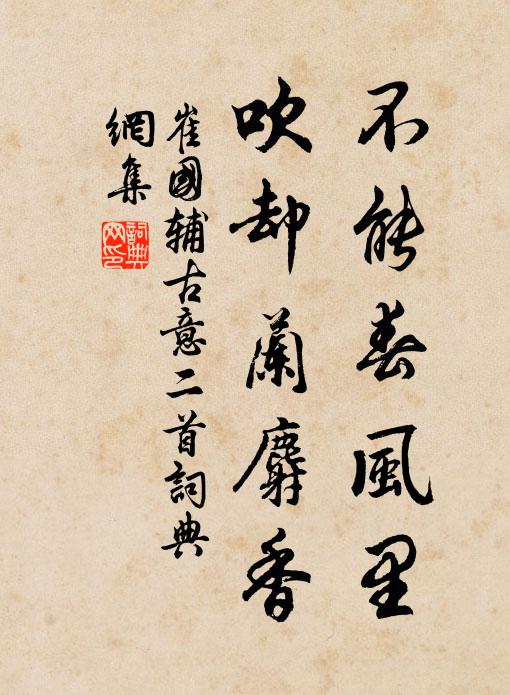 不能春風里
吹却蘭麝香
崔國輔古意二首詞典
網集
詞典
网印